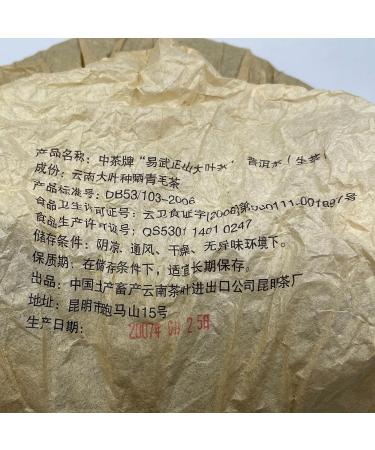 产品名称：中茶牌“易武正山大叶茶”普洱茶（生茶）
成份：云南大叶种晒青毛茶
产品标准号：DB53/103-2006
食品卫生许可证号：云卫食证字[2006]第530111-001897号
食品生产许可证号：QS5301 1401 0247
储存条件：阴凉、通风、干燥、无异味环境下。
保质期：在储存条件下，适宜长期保存。
出品：中国土产畜产云南茶叶进出口公司昆明茶厂
地址：昆明市跑马山15号
生产日期：2007年 25日